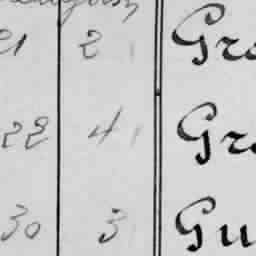 21 2 Gr
22 4 Gr
30 3 Gu